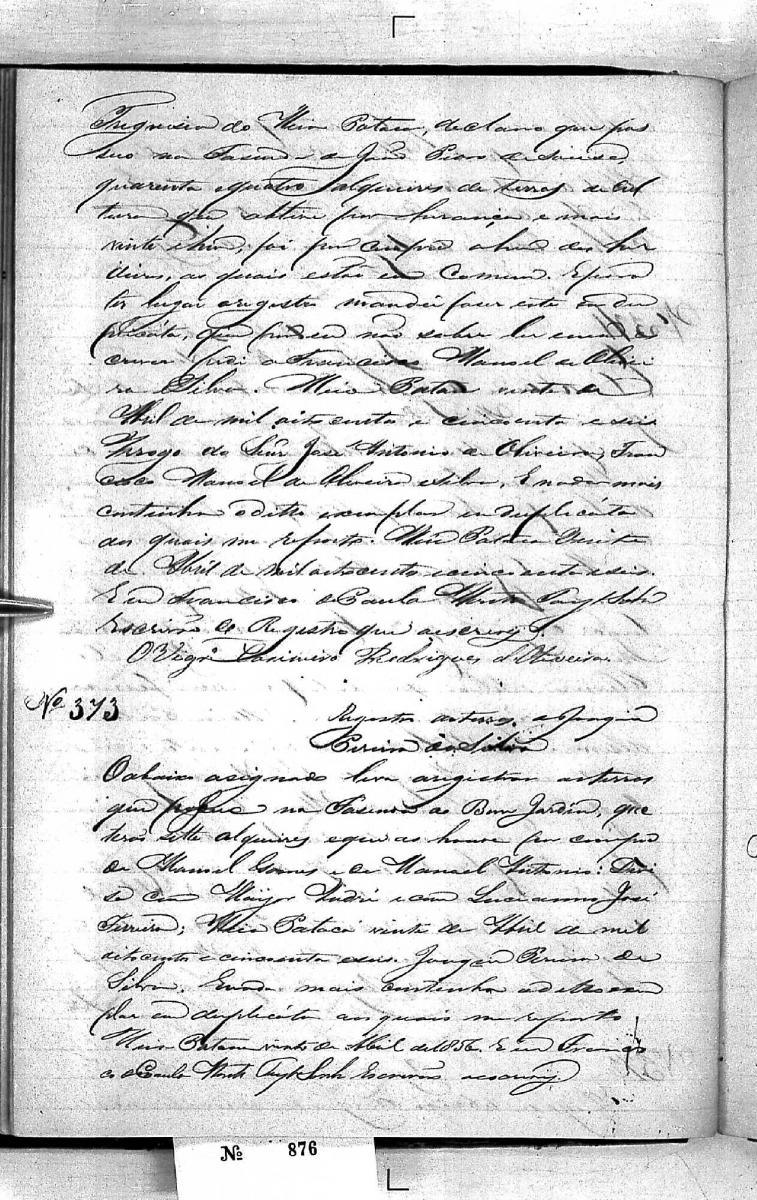 Freguesia do Meia Pataca, declaro que pos
suo na Fasenda de João
quarenta e quatro alqueires de terras de Cul
tura que obtive por herança e mais
vinte e hum, foi por compra a hum dos her
deiros, as quais estão em Comum. E para
ter lugar o registro mandei faser este em du
plicata, que por eu não saber ler nem es
crever pedi a Francisco Manoel de Olivei
ra e Silva. Meia Pataca vinte de
Abril de mil oito centos e cincoenta e seis
Arrogo do Snr José Antonio de Oliveira, Fran
cisco Manoel de Oliveira e Silva, E nada mais
continha o dito exemplar em duplicata
aos quais me reporto. Meia Pataca Vinte
de Abril de mil oito centos e cincoenta e seis.
E eu Francisco de Paula
Escrivão do Registro que a escrevy.
O Vigrº Casimiro Rodrigues d'Oliveira.
Nº 373
Registro as terras, de Joaquim
Pereira da Silva
O abaixo asignado leva a registrar as terras
que possue na Fasenda do Bom Jardim, que
terá sette alqueires e que as houve por compra
de Manoel Gomes e de Manoel Antonio: Divi
se com Major André e com Lucianno José
Ferreira; Meia Pataca vinte de Abril de mil
oito centos e cincoenta e seis. Joaquim Pereira da
Silva. E nada mais continha o dito exem
plar em duplicata aos quais me reporto
Meia Pataca vinte de Abril de 1856. E eu Francis
co de Paula Escrivão a escrevy
Nº 876